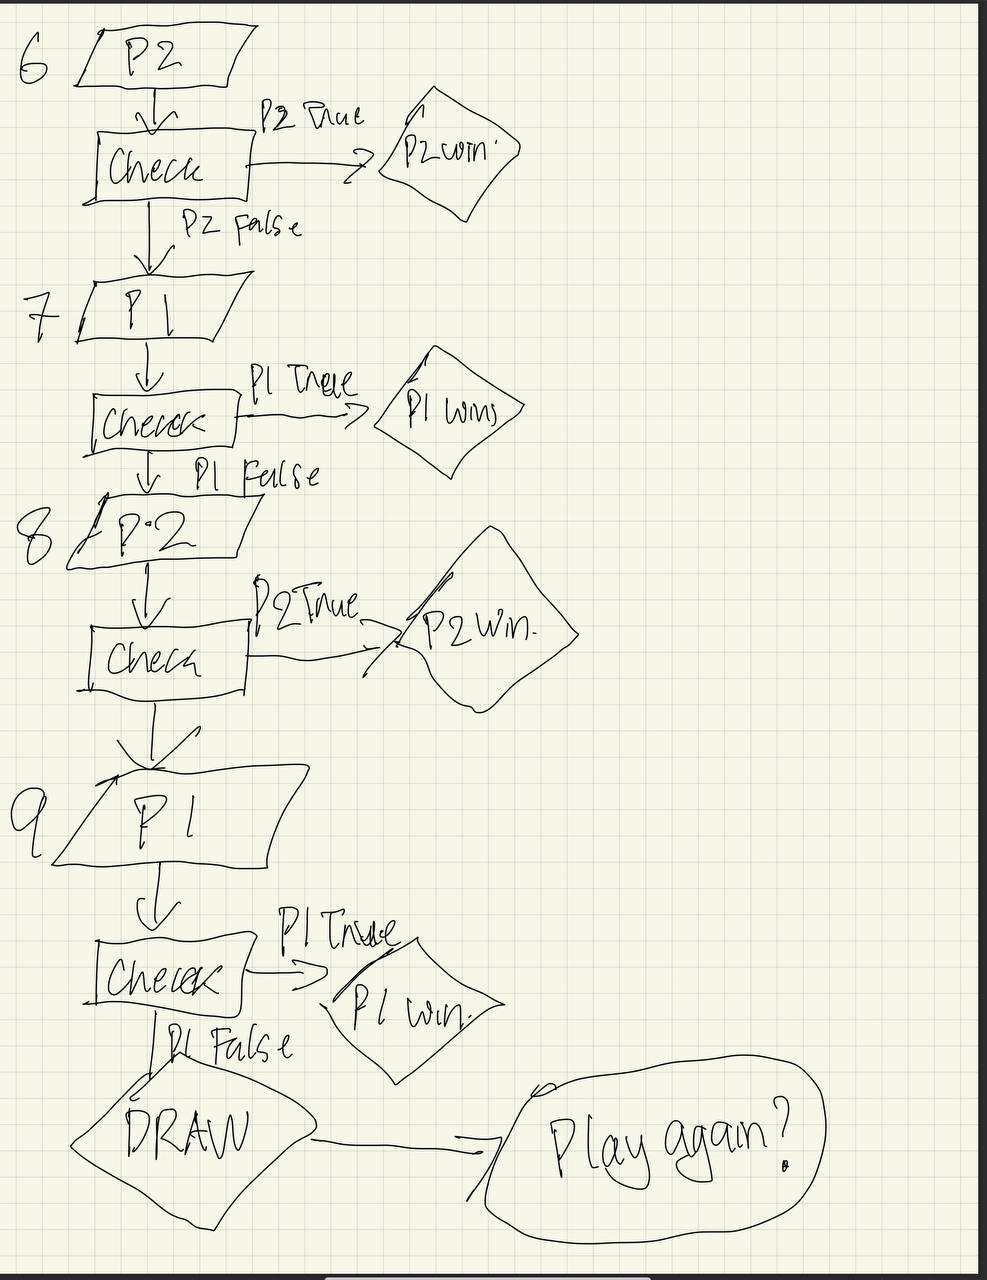 6
P2
Check
P2 True
P2 win.
P2 False
7
P1
Check
P1 True
P1 wins
P1 False
8
P.2
Check
P2 True
P2 Win.
9
P1
Check
P1 True
P1 win.
P1 False
DRAW
Play again?